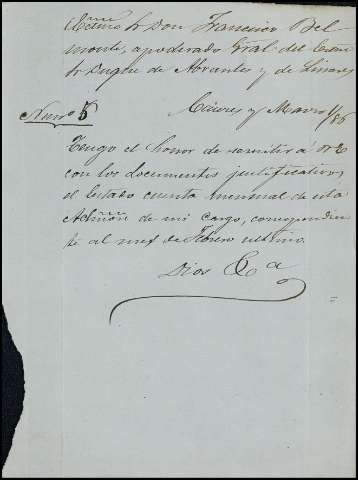 Excmo Sr Don Francisco Bel
monte, apoderado Gral del Excmo
Sr Duque de Abrantes y de Linares
Num o 5
Caceres y Marzo 1/86
Tengo el honor de remitir á VE
con los documentos justificativos
el Estado cuenta mensual de esta
Admon de mi cargo, correspondien
te al mes de Febrero ultimo.
Dios &a